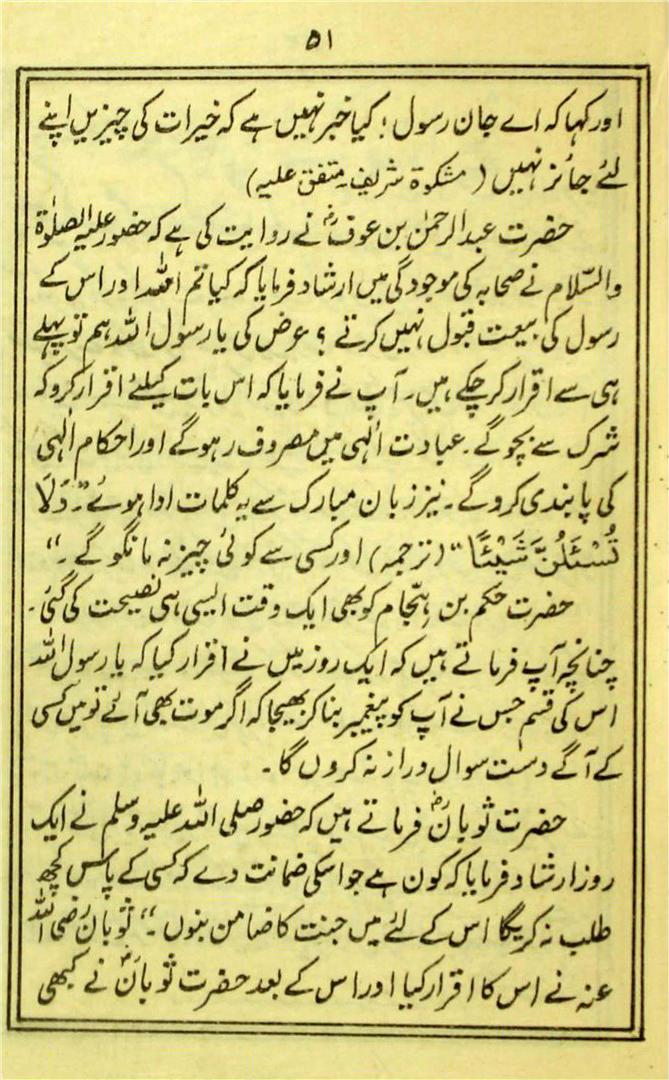 ۵۱
اور کہا کہ اے جان رسول! کیا خبر نہیں ہے کہ خیرات کی چیزیں اپنے
لئے جائز نہیں (مشکوٰۃ شریف۔ متفق علیہ)
حضرت عبدالرحمٰن بن عوفؓ نے روایت کی ہے کہ حضور علیہ الصلوٰۃ
والسّلام نے صحابہ کی موجودگی میں ارشاد فرمایا کہ کیا تم اللہ اور اس کے
رسول کی بیعت قبول نہیں کرتے؟ عرض کی یا رسول اللہ ہم تو پہلے
ہی سے اقرار کر چکے ہیں۔ آپ نے فرمایا کہ اس بات کیلئے اقرار کرو کہ
شرک سے بچو گے۔ عبادت الٰہی میں مصروف رہو گے اور احکام الٰہی
کی پابندی کرو گے۔ نیز زبان مبارک سے یہ کلمات ادا ہوئے۔ "وَلَا
تُسْئَلُنَّ شَیْئًا" (ترجمہ) اور کسی سے کوئی چیز نہ مانگو گے۔"
حضرت حکم بن ہجّام کو بھی ایک وقت ایسی ہی نصیحت کی گئی۔
چنانچہ آپ فرماتے ہیں کہ ایک روز میں نے اقرار کیا کہ یا رسول اللہ
اس کی قسم جس نے آپ کو پیغمبر بنا کر بھیجا کہ اگر موت بھی آئے تو میں کسی
کے آگے دست سوال دراز نہ کروں گا۔
حضرت ثوبانؓ فرماتے ہیں کہ حضور صلی اللہ علیہ وسلم نے ایک
روز ارشاد فرمایا کہ کون ہے جو اسکی ضمانت دے کہ کسی کے پاس کچھ
طلب نہ کریگا اس کے لئے میں جنت کا ضامن بنوں۔" ثوبان رضی اللہ
عنہ نے اس کا اقرار کیا اور اس کے بعد حضرت ثوبانؓ نے کبھی